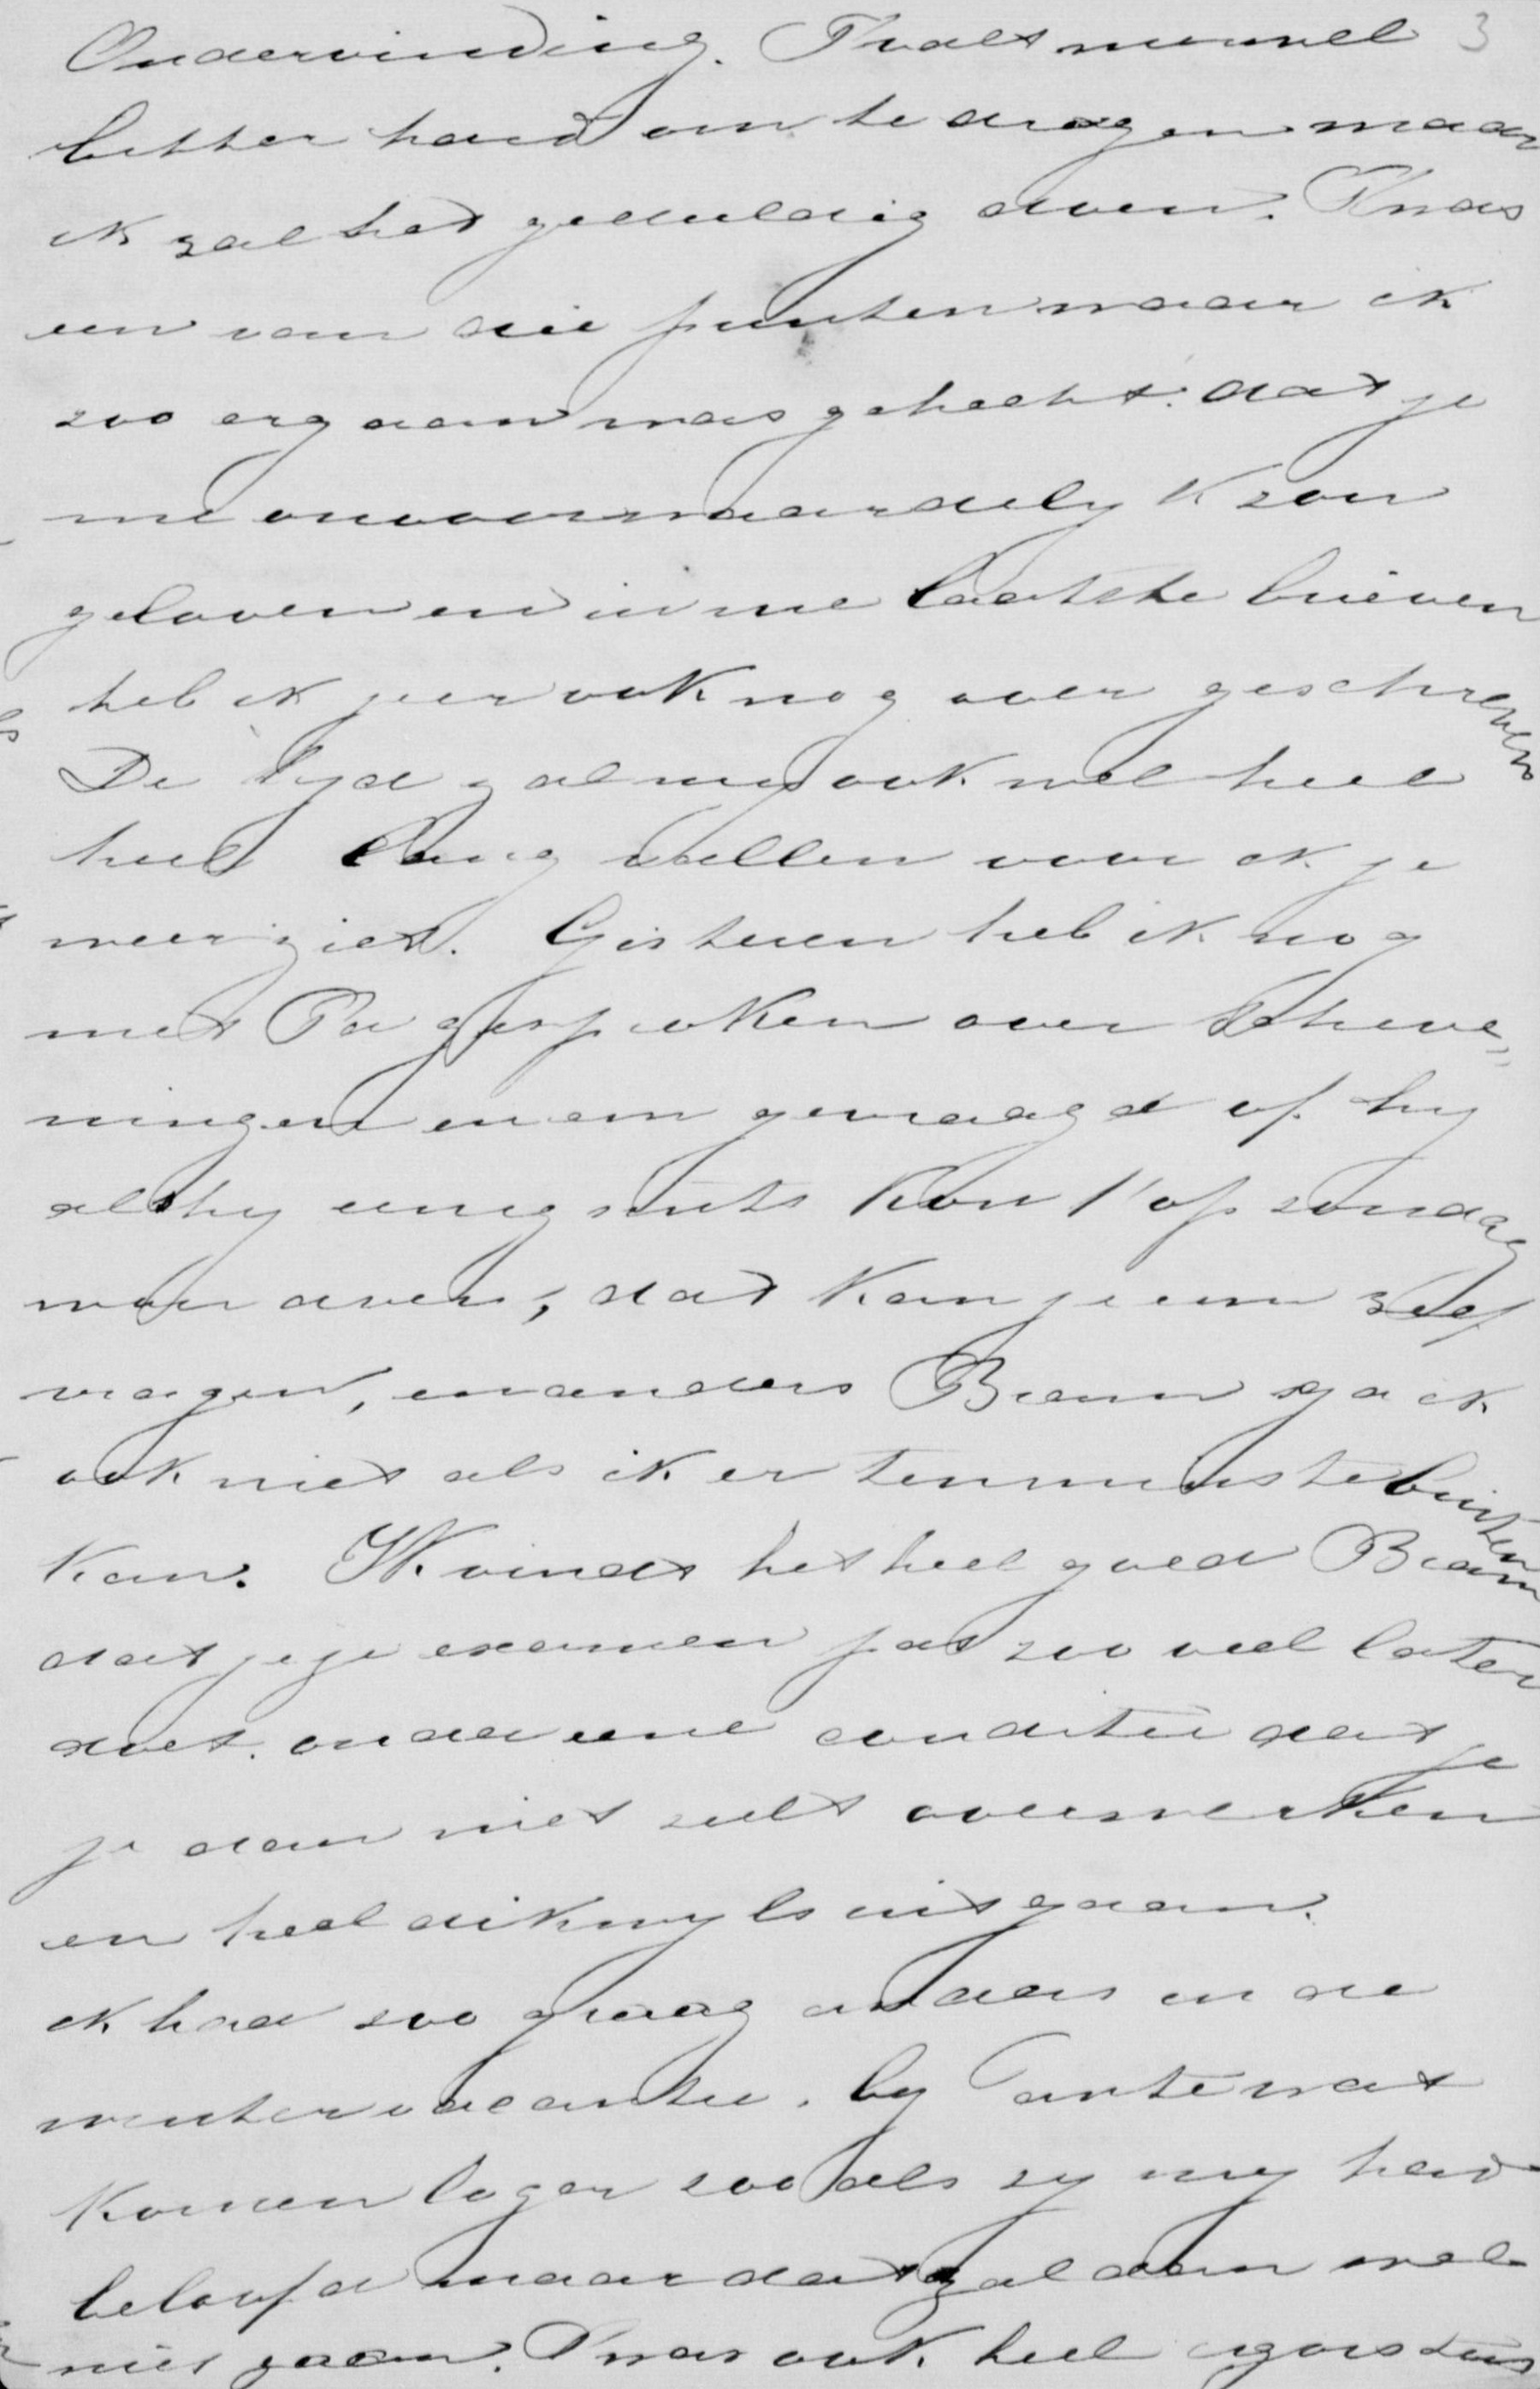 Ondervinding. T valt me wel 3
bitter hard om te dragen maar
ik zal het geduldig doen. T was
een van die punten waar ik
zoo erg aan was gehecht. dat je
me onvoorwaardelyk zou
gelooven en in me laatste brieven
heb ik je er ook nog over geschreven
De tyd zal my ook wel heel
heel lang vallen voor ik je
weer ziet. Gisteren heb ik nog
met Pa gesproken over Scheve„
ningen en em gevraagd of hy
als hy eenigsints kon 't op zondag
wou doen, dat kan je em zelf
vragen, en anders Bram ga ik
ook niet als ik er tenminste buiten
kan. Ik vindt het heel goed Bram
dat je je examen pas zoo veel later
doet. onder eene conditie dat je
je dan niet zult overwerken
en heel dikwyls uitgaan.
ik had zoo graag anders in de
wintervacantie. by Tante wat
komen loger zooals zy my had
beloofd maar dat zal dan wel
niet gaan. T was ook heel